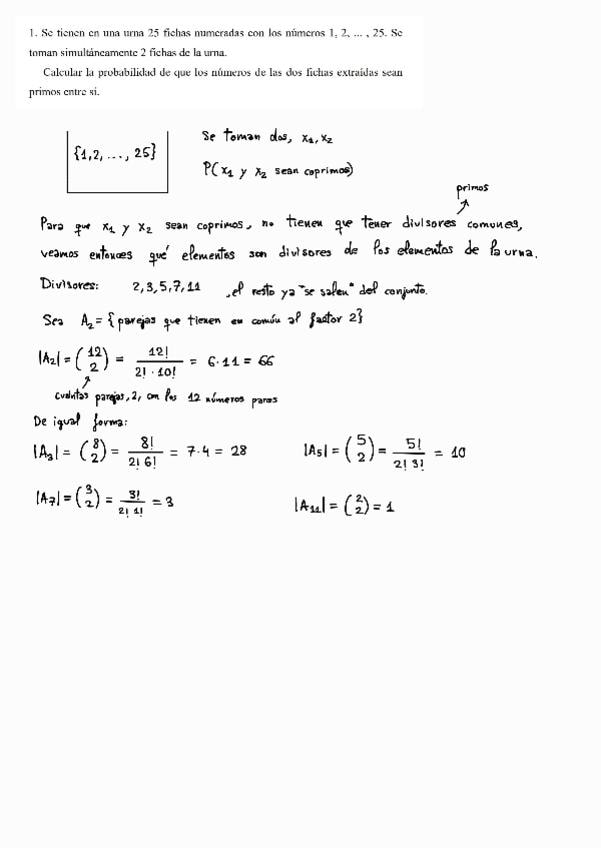 1. Se tienen en una urna 25 fichas numeradas con los números 1, 2, ... , 25. Se
toman simultáneamente 2 fichas de la urna.
Calcular la probabilidad de que los números de las dos fichas extraídas sean
primos entre si.
{1,2, ..., 25}
Se toman dos, x₁, x₂
P(x₁ y x₂ sean coprimos)
primos
Para que x₁ y x₂ sean coprimos, no tienen que tener divisores comunes,
veamos entonces qué elementos son divisores de los elementos de la urna.
Divisores: 2,3,5,7,11 , el resto ya "se salen" del conjunto.
Sea A₂ = {parejas que tienen en común al factor 2}
|A₂| = (12 2) = 12!/(2! · 10!) = 6·11 = 66
cuántas parejas, 2, con los 12 números pares
De igual forma:
|A₃| = (8 2) = 8!/(2! 6!) = 7·4 = 28 |A₅| = (5 2) = 5!/(2! 3!) = 10
|A₇| = (3 2) = 3!/(2! 1!) = 3 |A₁₁| = (2 2) = 1